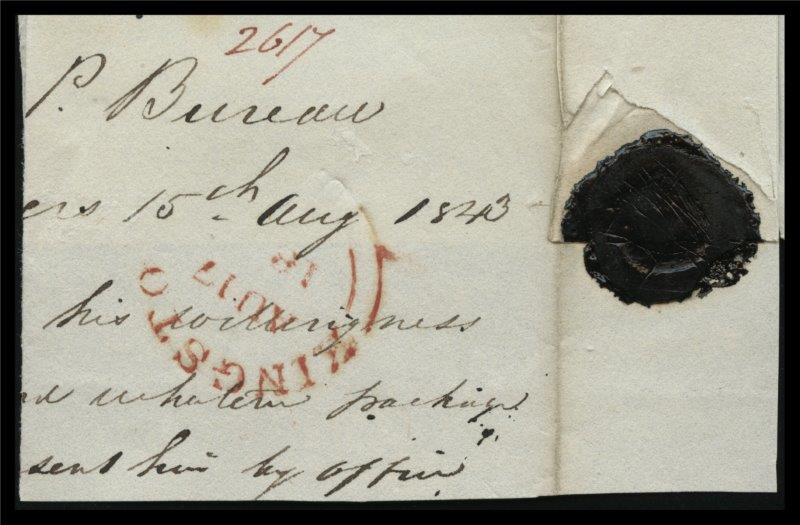 2617
P. Bureau
ers 15th Aug 1843
KINGSTO
AU 17
18
his willingness
whatever package
sent him by office